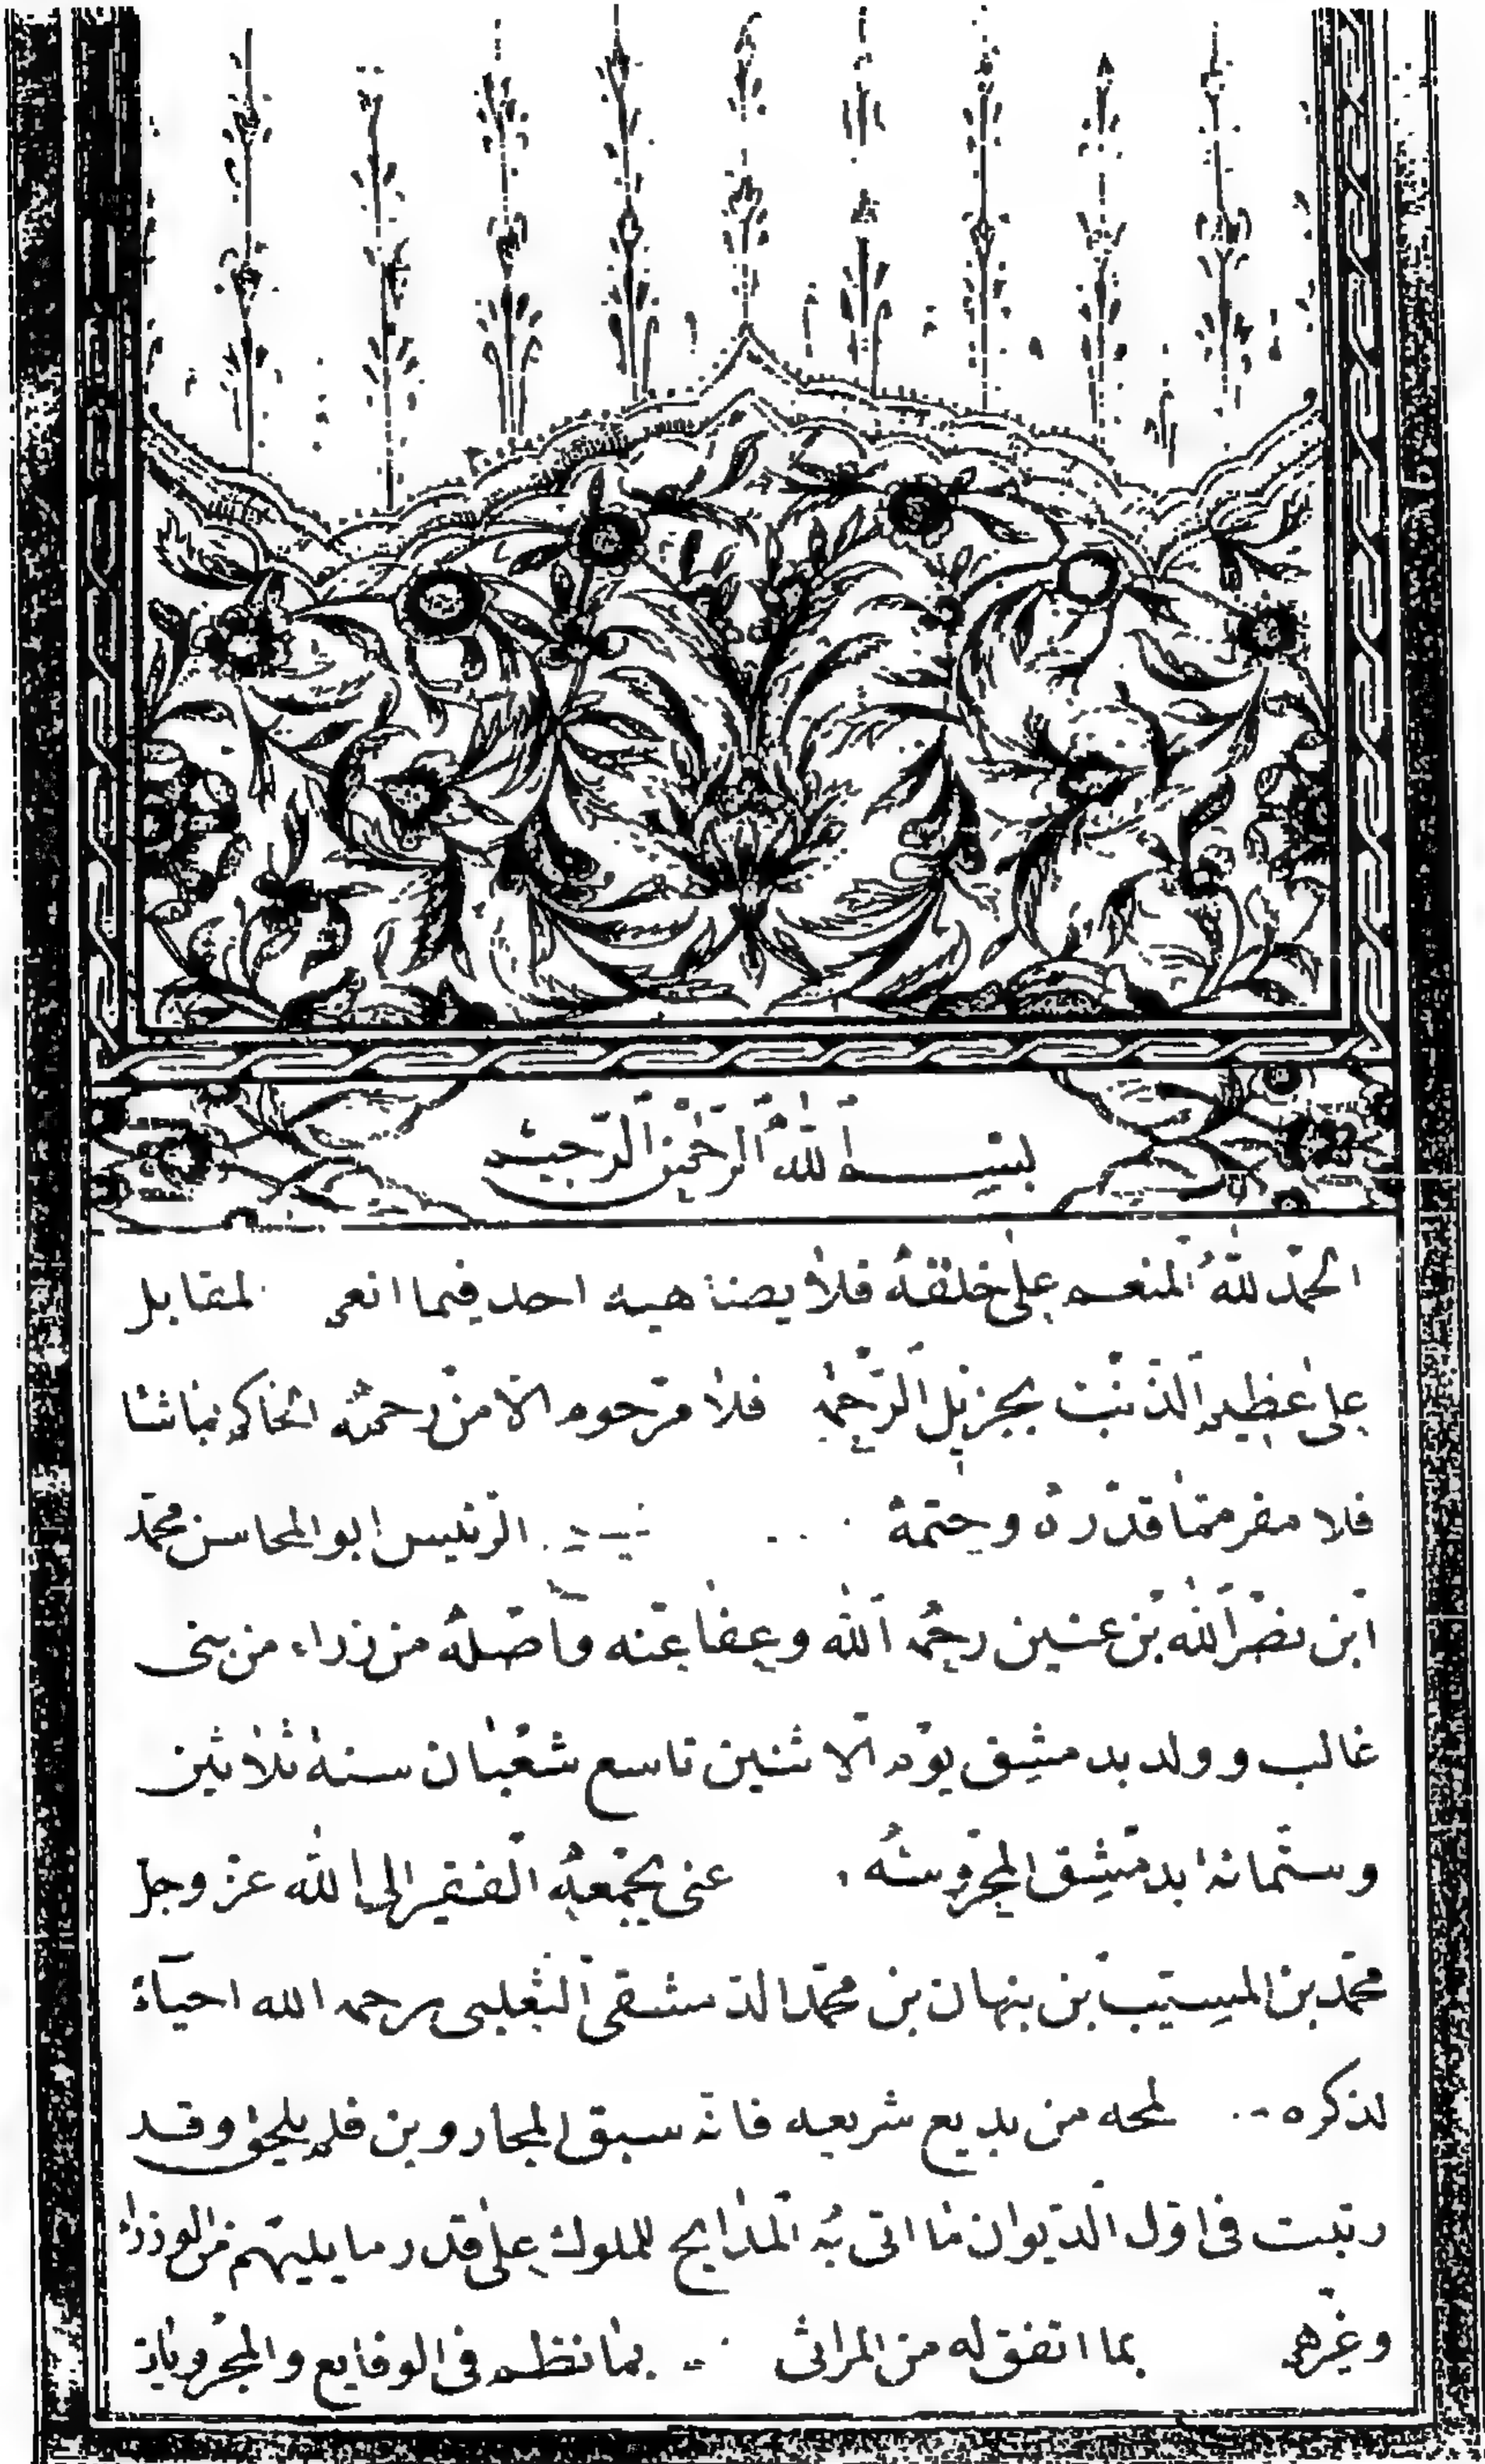 بسم الله الرحمن الرحيم
الحمد لله المنعم على خلقه فلا يضاهيه احد فيما انعم المقابل
على عظيم الذنب بجزيل الرحمة فلا مرحوم الا من رحمته الحاكم بما شا
فلا مفر مما قدره وحتمه الرئيس ابو المحاسن محمد
ابن نصر الله بن عنين رحمه الله وعفا عنه واصله من زراء من بنى
غالب وولد بدمشق يوم الاثنين تاسع شعبان سنة ثلاثين
وستمائة بدمشق المحروسة عنى بجمعه الفقير الى الله عز وجل
محمد بن المسيب بن بنهان بن محمد الدمشقى الثعلبى رحمه الله احياء
لذكره لمحه من بديع شريعه فانه سبق المجاروين فلم يلحق وقد
رتبت فى اول الديوان ما اتى به المدايح للملوك على قدر ما يليهم من الوزراء
وغيرهم بما اتفق له من المراثى بما نظم فى الوقايع والمجرويات